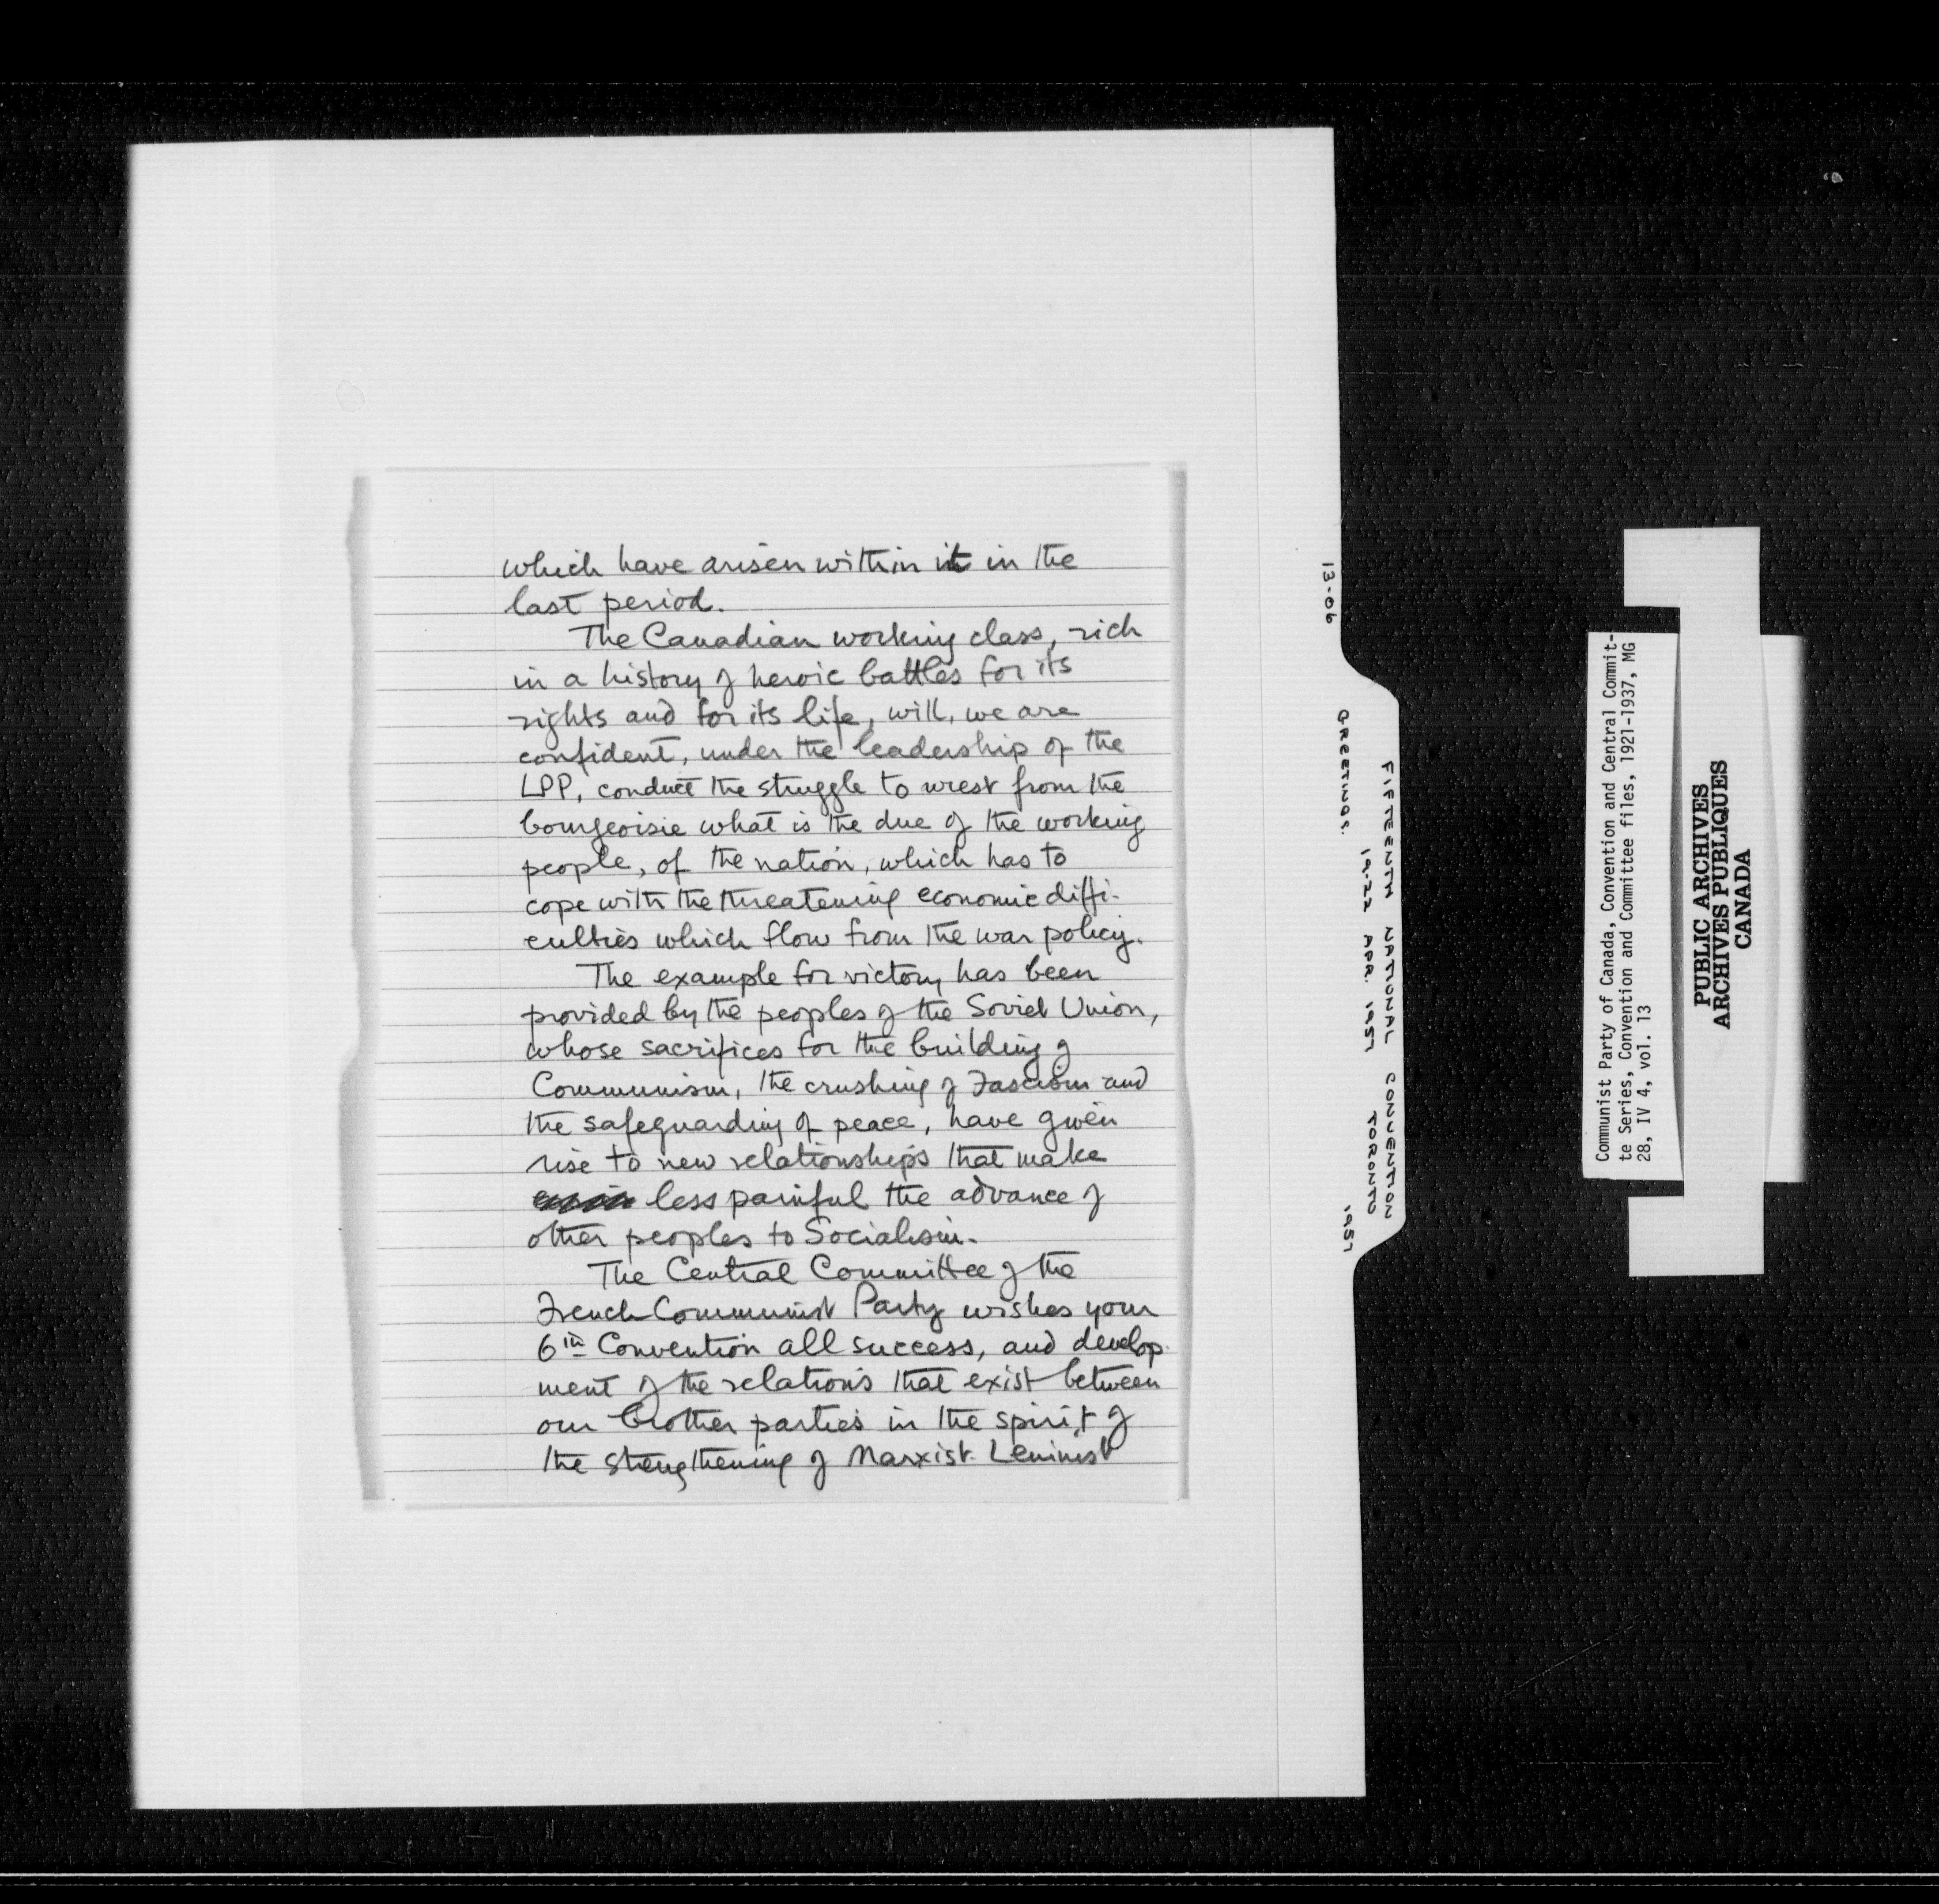 which have arisen within it in the
last period.
The Canadian working class, rich
in a history of heroic battles for its
rights and for its life, will, we are
confident, under the leadership of the
LPP, conduct the struggle to wrest from the
bourgeoisie what is the due of the working
people, of the nation, which has to
cope with the threatening economic diffi-
culties which flow from the war policy.
The example for victory has been
provided by the peoples of the Soviet Union,
whose sacrifices for the building of
Communism, the crushing of Fascism and
the safeguarding of peace, have given
rise to new relationships that make
less painful the advance of
other peoples to Socialism.
The Central Committee of the
French Communist Party wishes your
6th Convention all success, and develop-
ment of the relations that exist between
our brother parties in the spirit of
the strengthening of Marxist-Leninist
13-06
GREETINGS.
1957
FIFTEENTH NATIONAL CONVENTION
19-22 APR. 1957 TORONTO
Communist Party of Canada, Convention and Central Commit-
te Series, Convention and Committee files, 1921-1937, MG
28, IV 4, vol. 13
PUBLIC ARCHIVES
ARCHIVES PUBLIQUES
CANADA